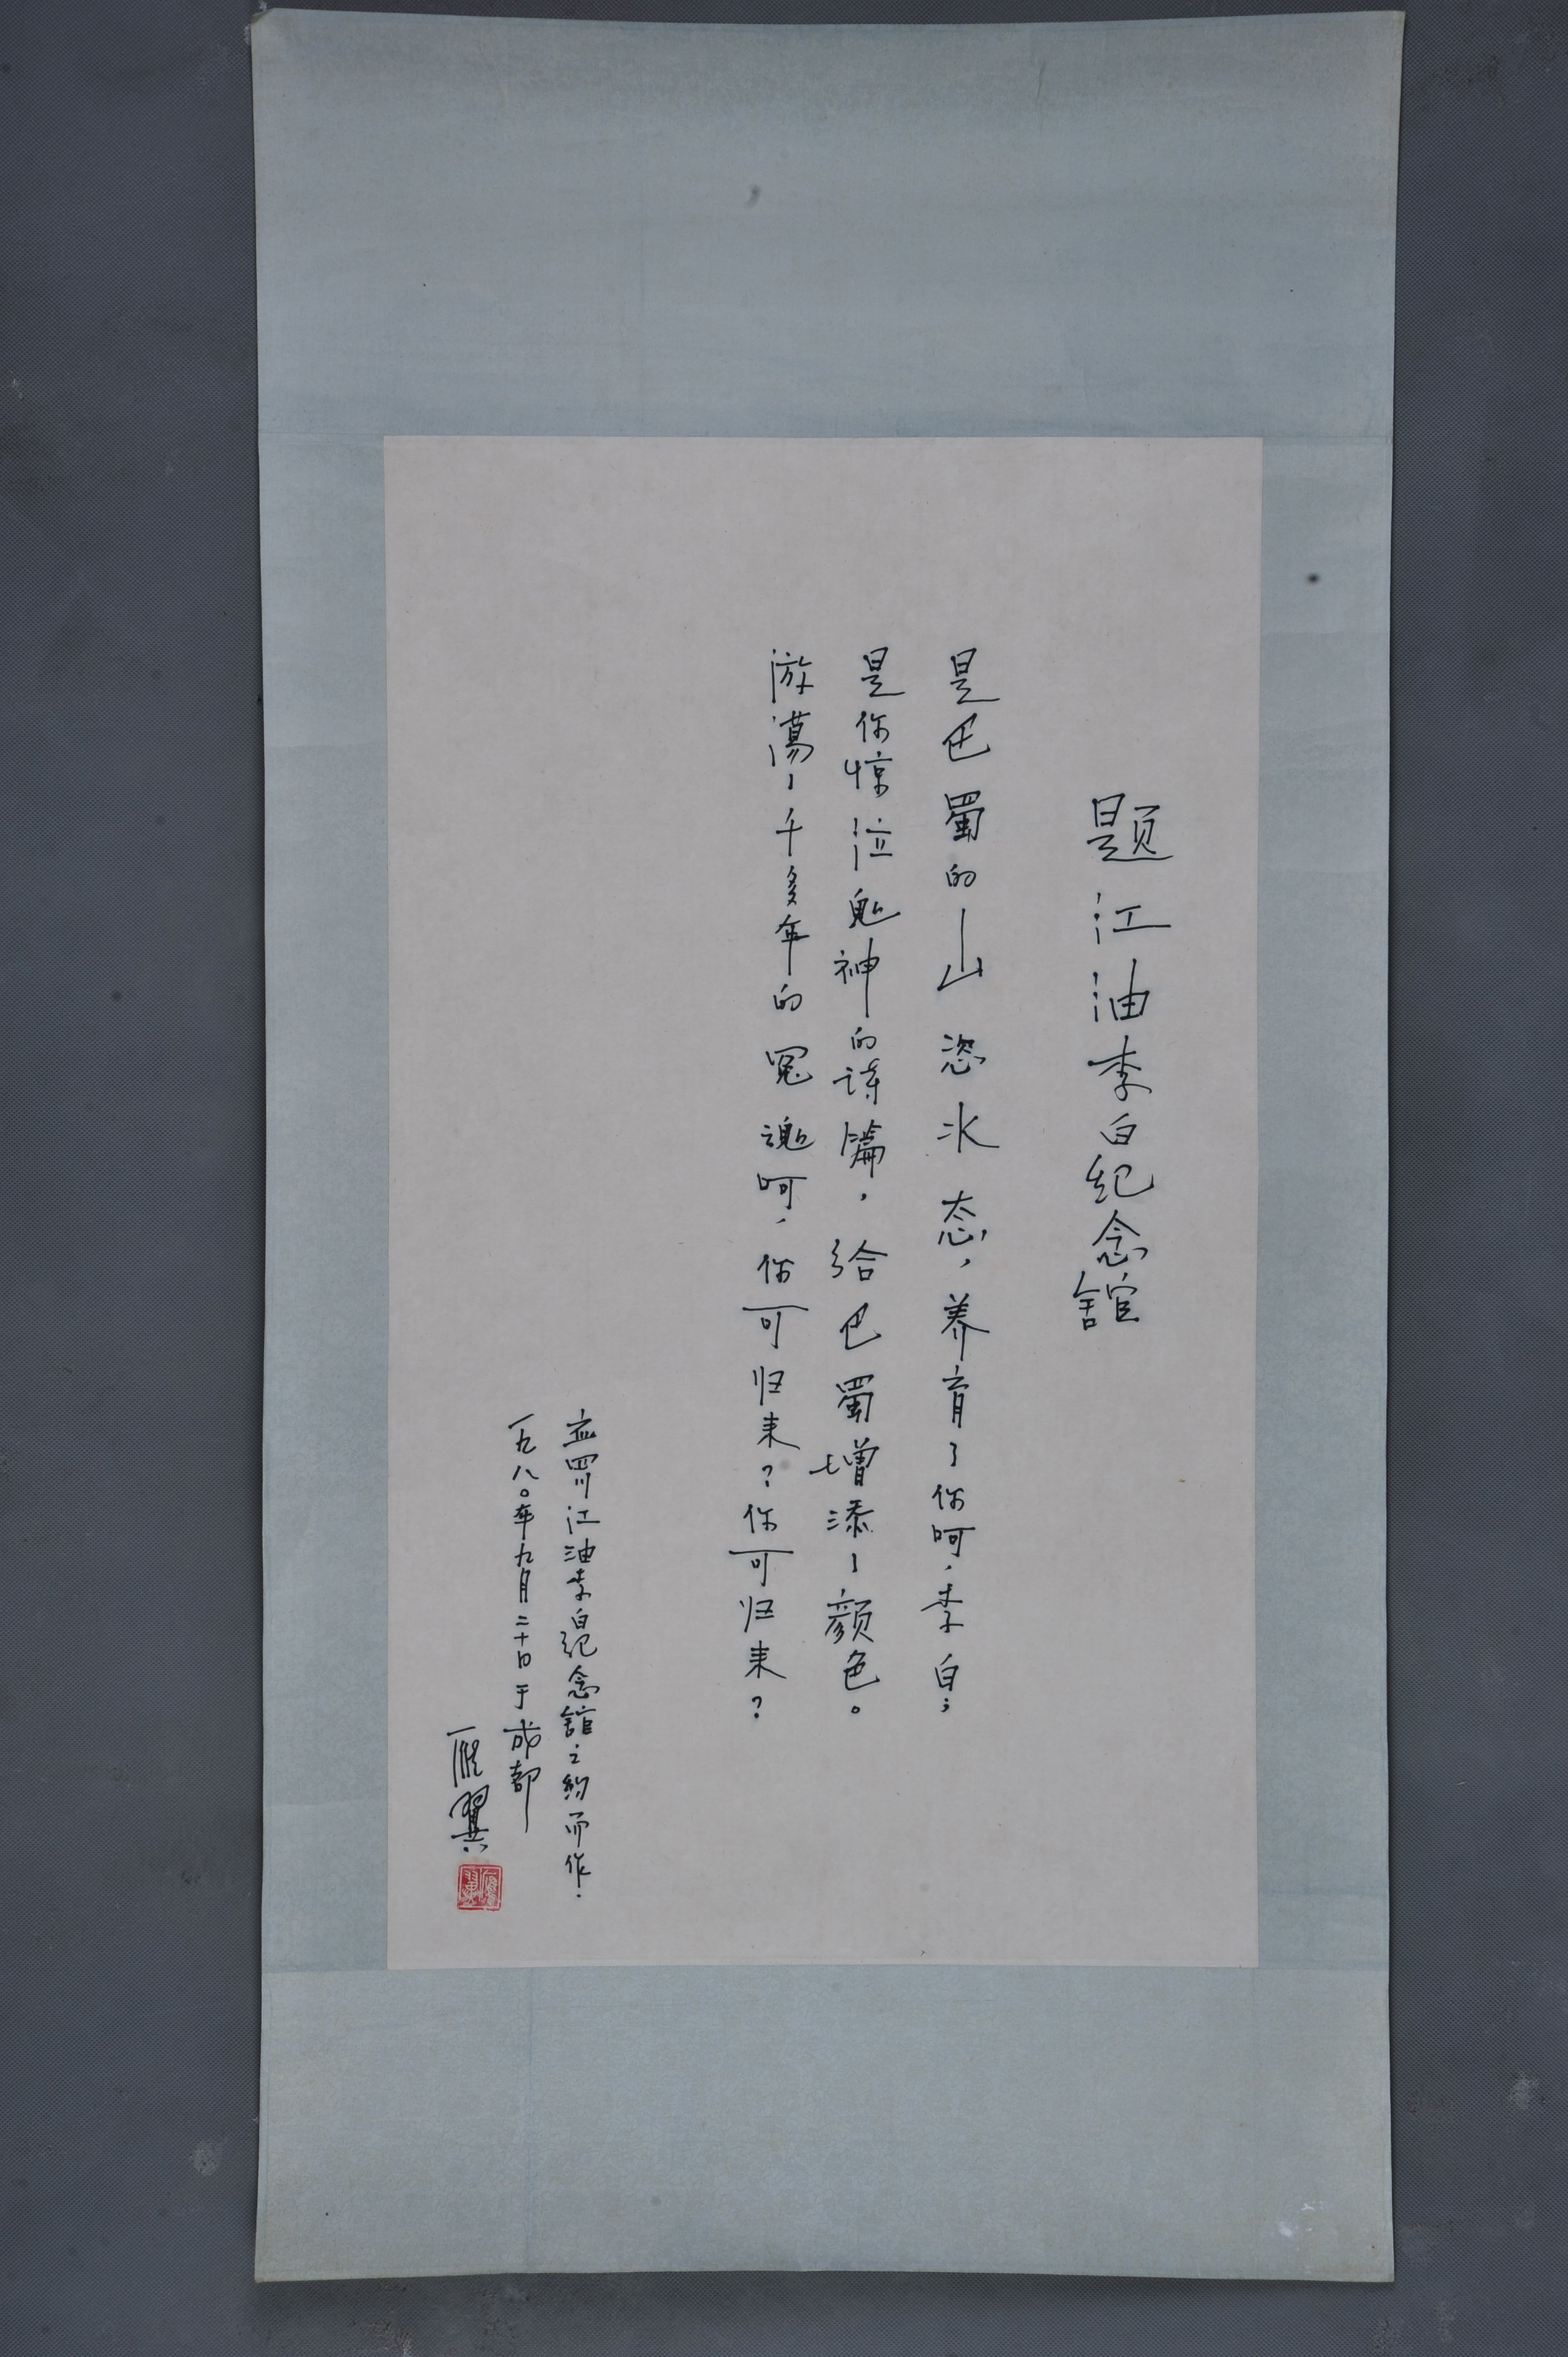 题江油李白纪念馆
是巴蜀的山恣水态，养育了你呵，李白；
是你惊泣鬼神的诗篇，给巴蜀增添了颜色。
游荡了千多年的冤魂呵，你可归来？你可归来？
应四川江油李白纪念馆之约而作.
一九八〇年九月二十日于成都
雁翼
雁翼